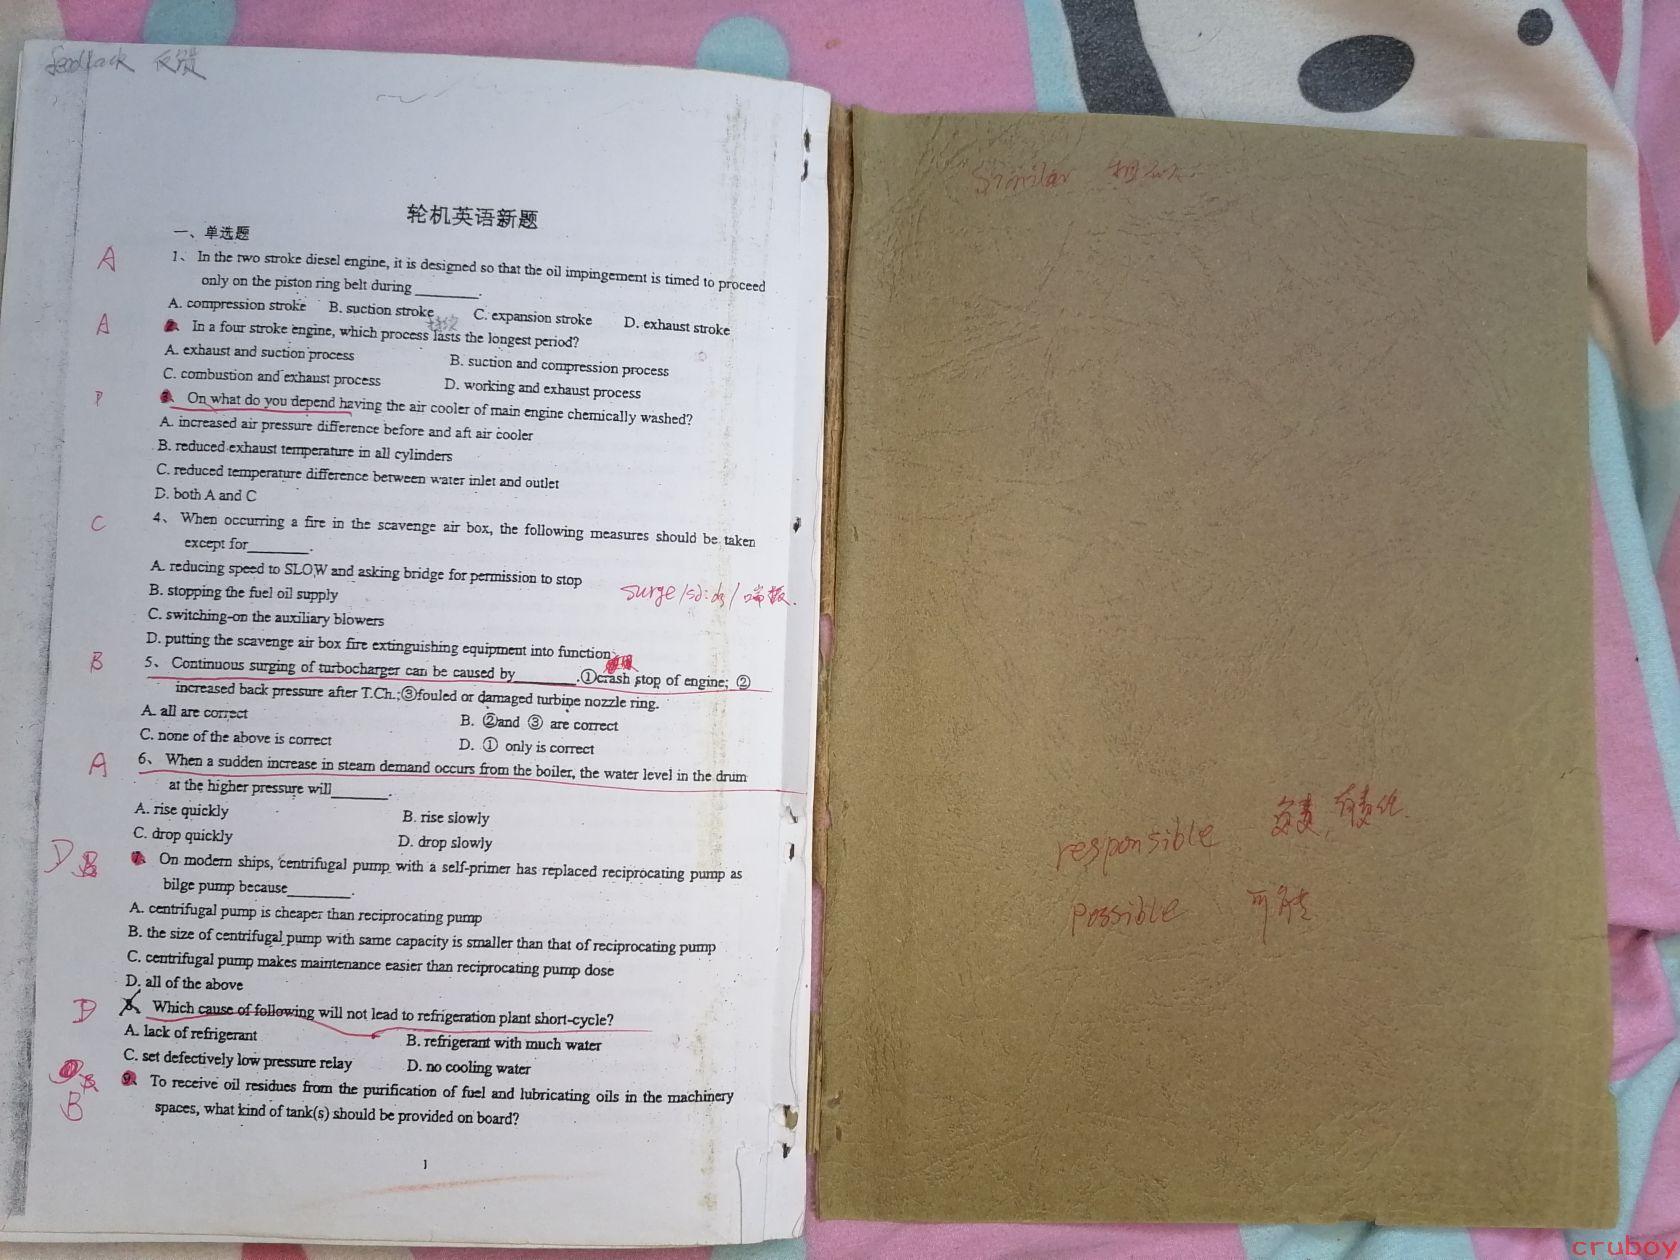 feedback 反馈
轮机英语新题
一、单选题
A 1、 In the two stroke diesel engine, it is designed so that the oil impingement is timed to proceed
only on the piston ring belt during ________.
A. compression stroke B. suction stroke C. expansion stroke D. exhaust stroke
持续
A 2、 In a four stroke engine, which process lasts the longest period?
A. exhaust and suction process B. suction and compression process
C. combustion and exhaust process D. working and exhaust process
3、 On what do you depend having the air cooler of main engine chemically washed?
A. increased air pressure difference before and aft air cooler
B. reduced exhaust temperature in all cylinders
C. reduced temperature difference between water inlet and outlet
D. both A and C
C 4、 When occurring a fire in the scavenge air box, the following measures should be taken
except for ________.
A. reducing speed to SLOW and asking bridge for permission to stop
B. stopping the fuel oil supply
surge
C. switching-on the auxiliary blowers
D. putting the scavenge air box fire extinguishing equipment into function
B 5、 Continuous surging of turbocharger can be caused by ________.①crash stop of engine; ②
increased back pressure after T.Ch.;③fouled or damaged turbine nozzle ring.
A. all are correct B. ②and ③ are correct
C. none of the above is correct D. ① only is correct
A 6、 When a sudden increase in steam demand occurs from the boiler, the water level in the drum
at the higher pressure will________.
A. rise quickly B. rise slowly
C. drop quickly D. drop slowly
D B 7、 On modern ships, centrifugal pump with a self-primer has replaced reciprocating pump as
bilge pump because________.
A. centrifugal pump is cheaper than reciprocating pump
B. the size of centrifugal pump with same capacity is smaller than that of reciprocating pump
C. centrifugal pump makes maintenance easier than reciprocating pump dose
D. all of the above
D 8、 Which cause of following will not lead to refrigeration plant short-cycle?
A. lack of refrigerant B. refrigerant with much water
C. set defectively low pressure relay D. no cooling water
B 9、 To receive oil residues from the purification of fuel and lubricating oils in the machinery
spaces, what kind of tank(s) should be provided on board?
1
Similar 相似
responsible 负责，有责任
possible 可能
cruboy